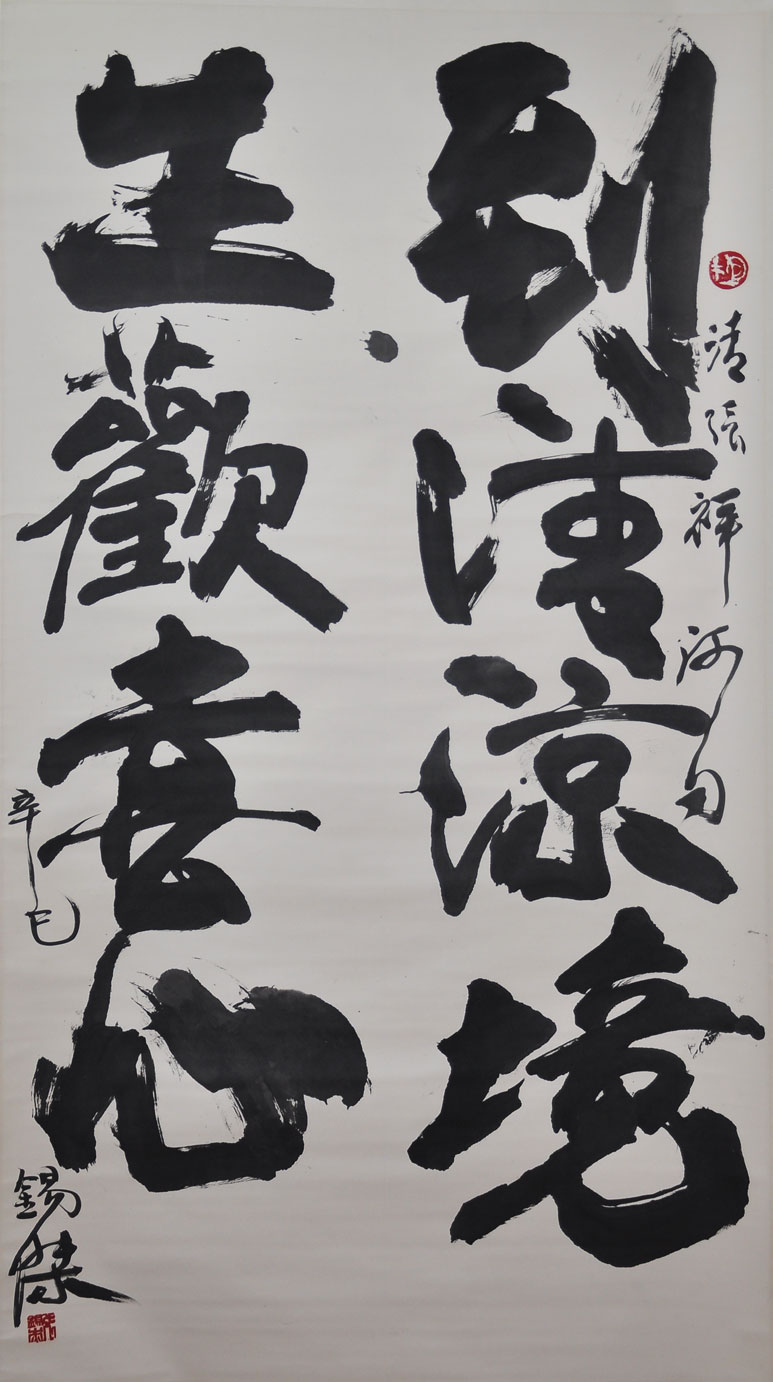 到清涼境
生歡喜心
清張祥河句
辛巳
錫傑